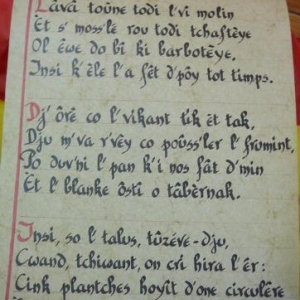 Lâvâ toûne todi l'vi molin
Èt s' moss'lé rou todi tchaftèye
Ol éwe do bî ki barbotèye,
Insi k'èle l'a fêt d'pôy tot timps.
Dj' ôrè co l'vikant tik èt tak,
Dju m'va r'vèy co poûss'ler l' frumint,
Po duv'ni l' pan k'i nos fât d'min
Èt l' blanke ôsti o tâbèrnak.
Insi, so l' talus, tûzéve-dju,
Cwand, tchiwant, on cri hira l'êr:
Cink plantches hoyît d'one circulêre